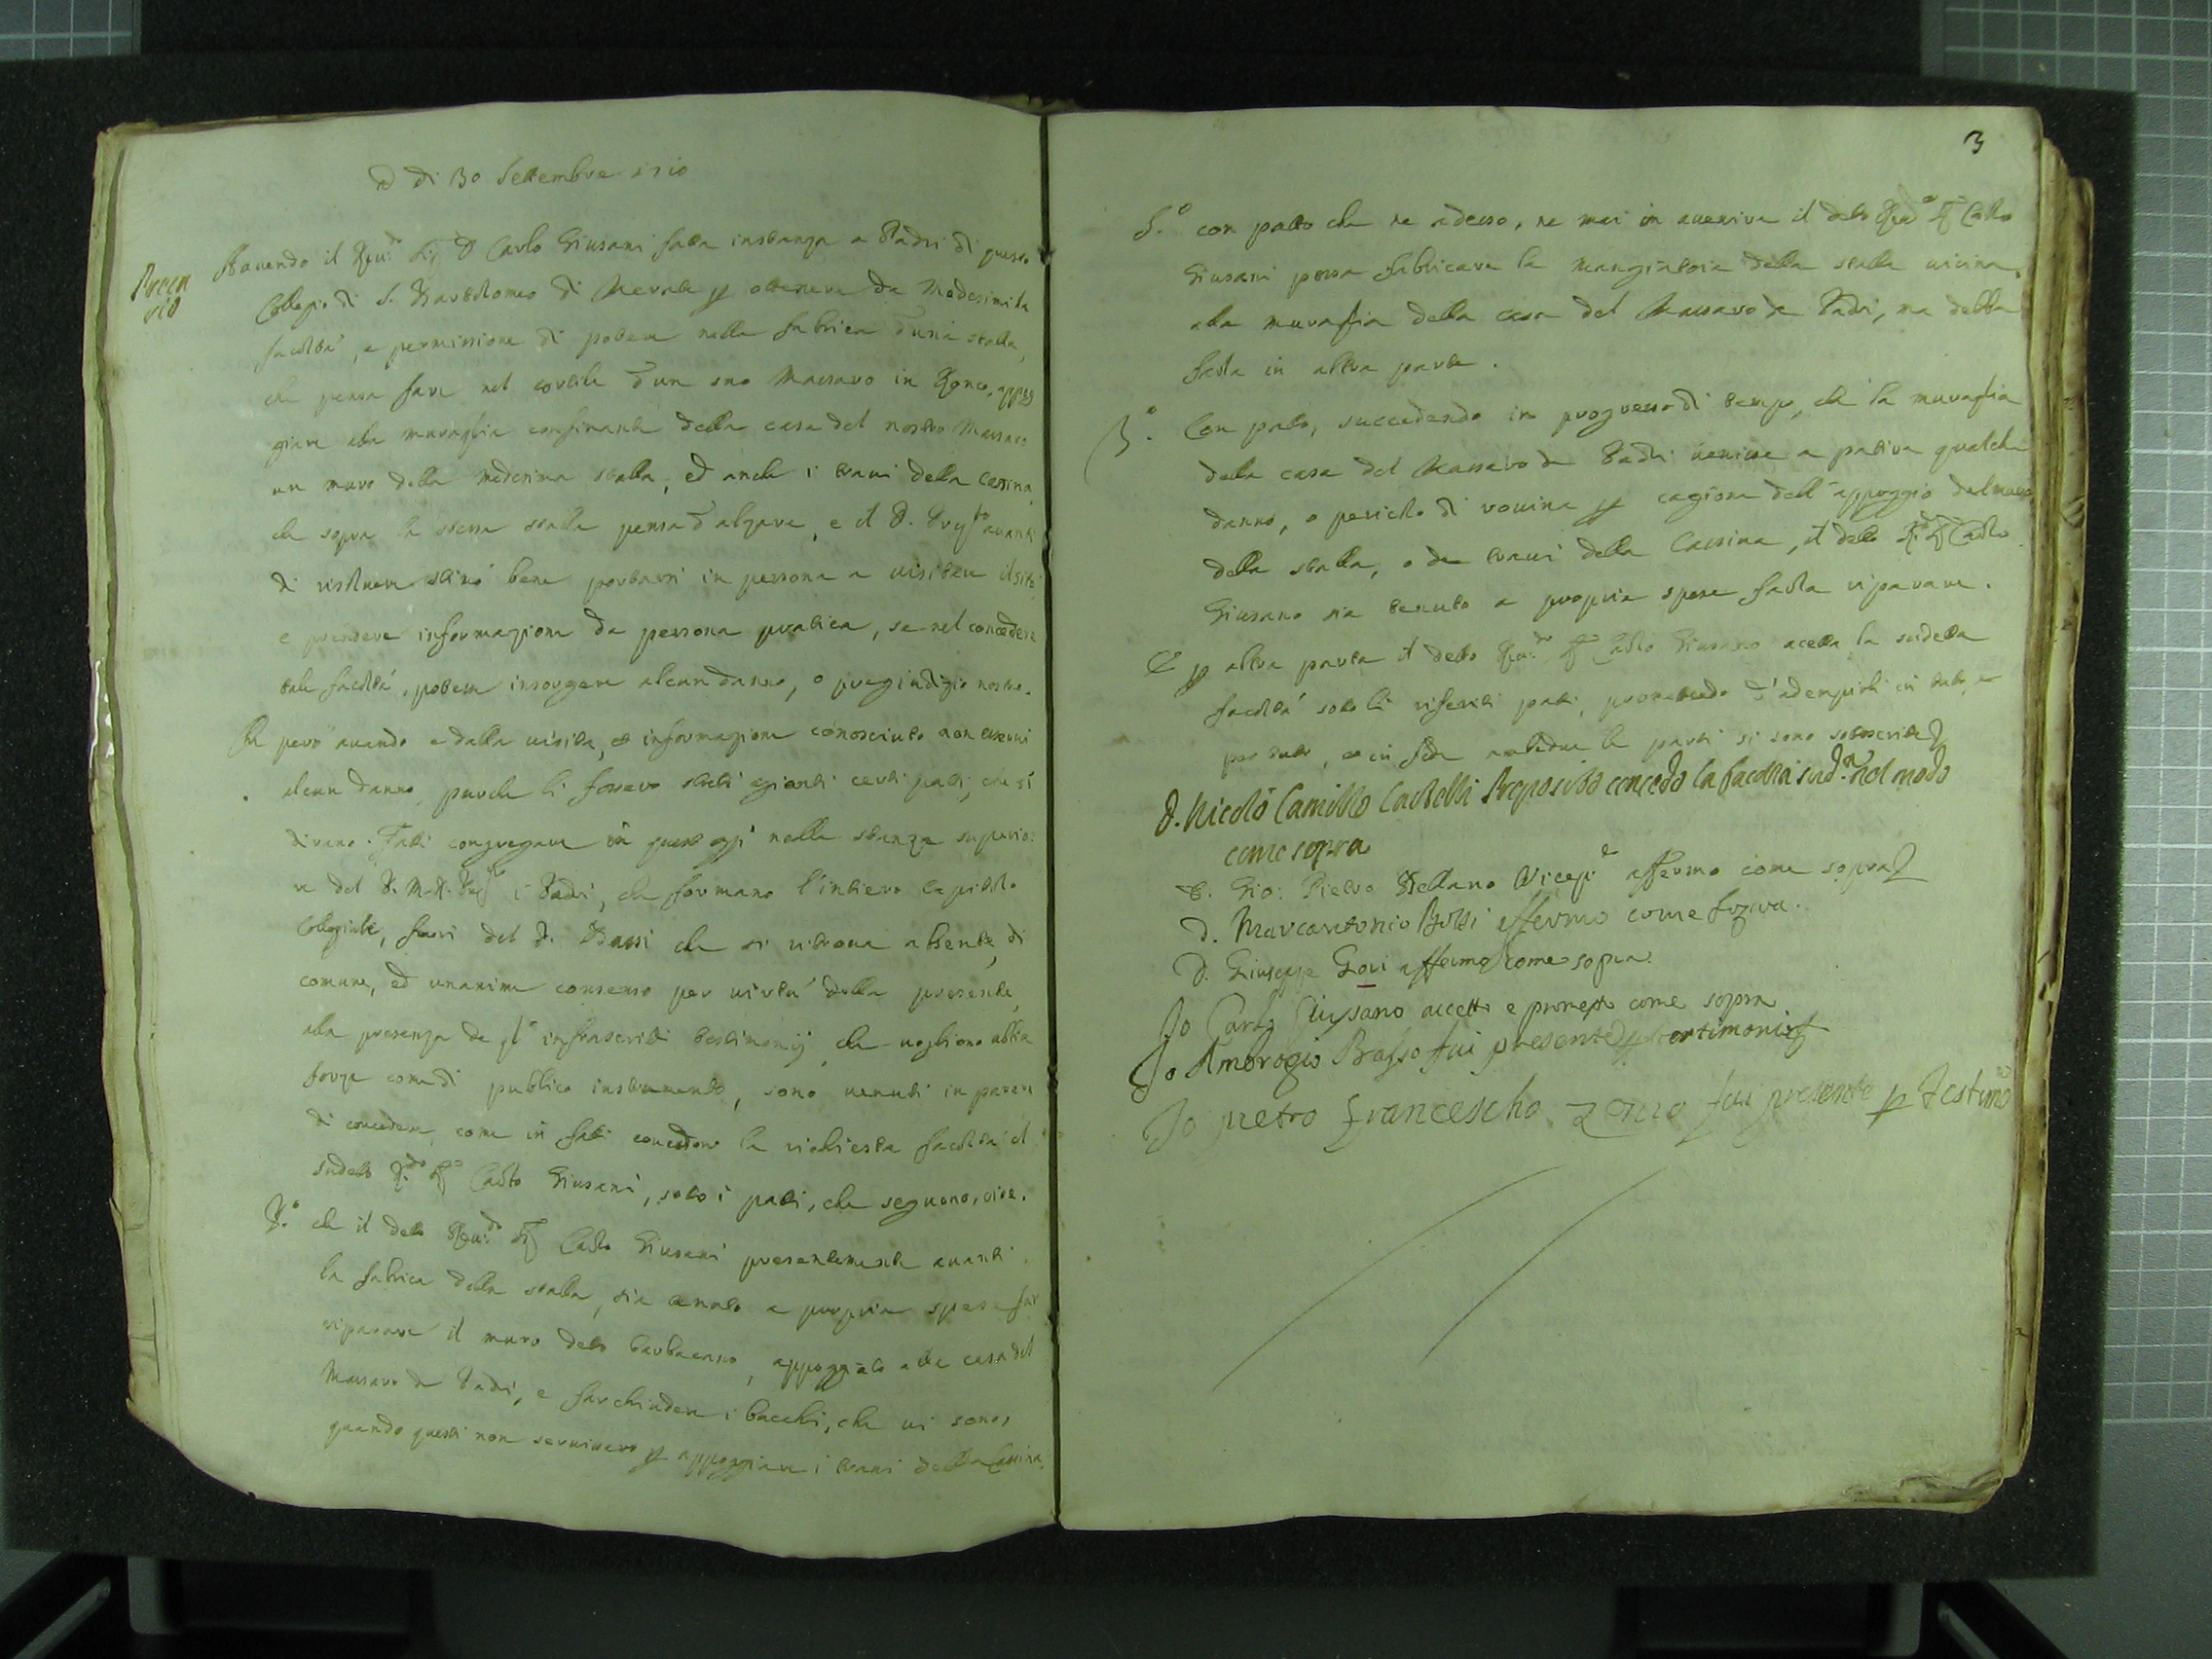 A di 30 Settembre 1710
Hauendo il Reu.do Sig.r D Carlo Giusani fatta instanza a Padri di questo
Collegio di S. Bartolomeo di Merate p ottenere da Medesimi la
facoltà, e permissione di potere nella fabrica d'una stalla,
che pensa fare nel cortile d'un suo Massaro in appog
giare alla muraglia confinante della casa del nostro Massaro
un muro della medesima stalla, ed anche i traui della cassina,
che sopra la stessa stalla pensa d'alzare, e il P. Prep.to auanti
di risoluere stimò bene portarsi in persona a uisitare il sito
e prendere informazione da persona pratica, se nel concedere
tale facoltà, potesse insorgere alcun danno, o pregiudizio nostro.
Il però auendo e dalla uisita, et informazione conosciuto non esserui
alcun danno, purche li fossero stati agionti certi patti, che si
diranno. Fatti congregare in quest oggi nelle stanze superio:
re del P. M. R. i Padri, che formano l'intiero capitolo
Collegiale, fuori del P. Bassi che si ritroua absente, di
comune, ed unanime consenso per uirtù della presente
alla presenza de gl' infrascritti testimonij, che uogliono abbia
forza come di publico instrumento, sono uenuti in parere
di concedere, come in fatti concedono la richiesta facoltà al
sudetto R.do Sig.r Carlo Giusani, sotto i patti, che seguono, cioe.
P.o che il detto Reu.do Sig.r Carlo Giusani presentemente auanti
la fabrica della stalla, sia tenuto a propria spesa far
riparare il muro detto barbacano, appoggiato alla casa del
Massaro de Padri, e far chiudere i bucchi, che ui sono,
quando questi non seruissero p appoggiare i traui della Cassina.
3
S.o con patto che ne adesso, ne mai in auenire il detto Reu.do Sig.r Carlo
Giusani possa fabbricare la mangiatoia della stalla uicina
alla muraglia della casa del Massaro de Padri, ma debba
farla in altra parte.
3.o Con patto, succedendo in progresso di tempo, che la muraglia
della casa del Massaro de Padri uenisse a patire qualche
danno, o pericolo di rouina p cagione dell' appoggio del muro
della stalla, o de traui della Cassina, il detto R.do Sig.r Carlo
Giusano sia tenuto a propria spesa farla riparare.
E p altra parte il detto Reu.do Sig.r Carlo Giusano acetta la sudetta
facoltà sotto li riferiti patti, promettendo d'adempirli in tutto, e
per tutto, et in fede ambedue le parti si sono sottoscritte
D. Nicolò Camillo Castelli Preposito concedo la facoltà sud.a nel modo
come sopra
D. Gio: Pietro Vicep.to affermo come sopra
D. Marcantonio affermo come sopra.
D. Giuseppe Goui affermo come sopra.
Io Carlo Giusano accetto e prometto come sopra
Io Ambrogio Brasso fui presente p testimonio
Io pietro francescho fui presente p testimo